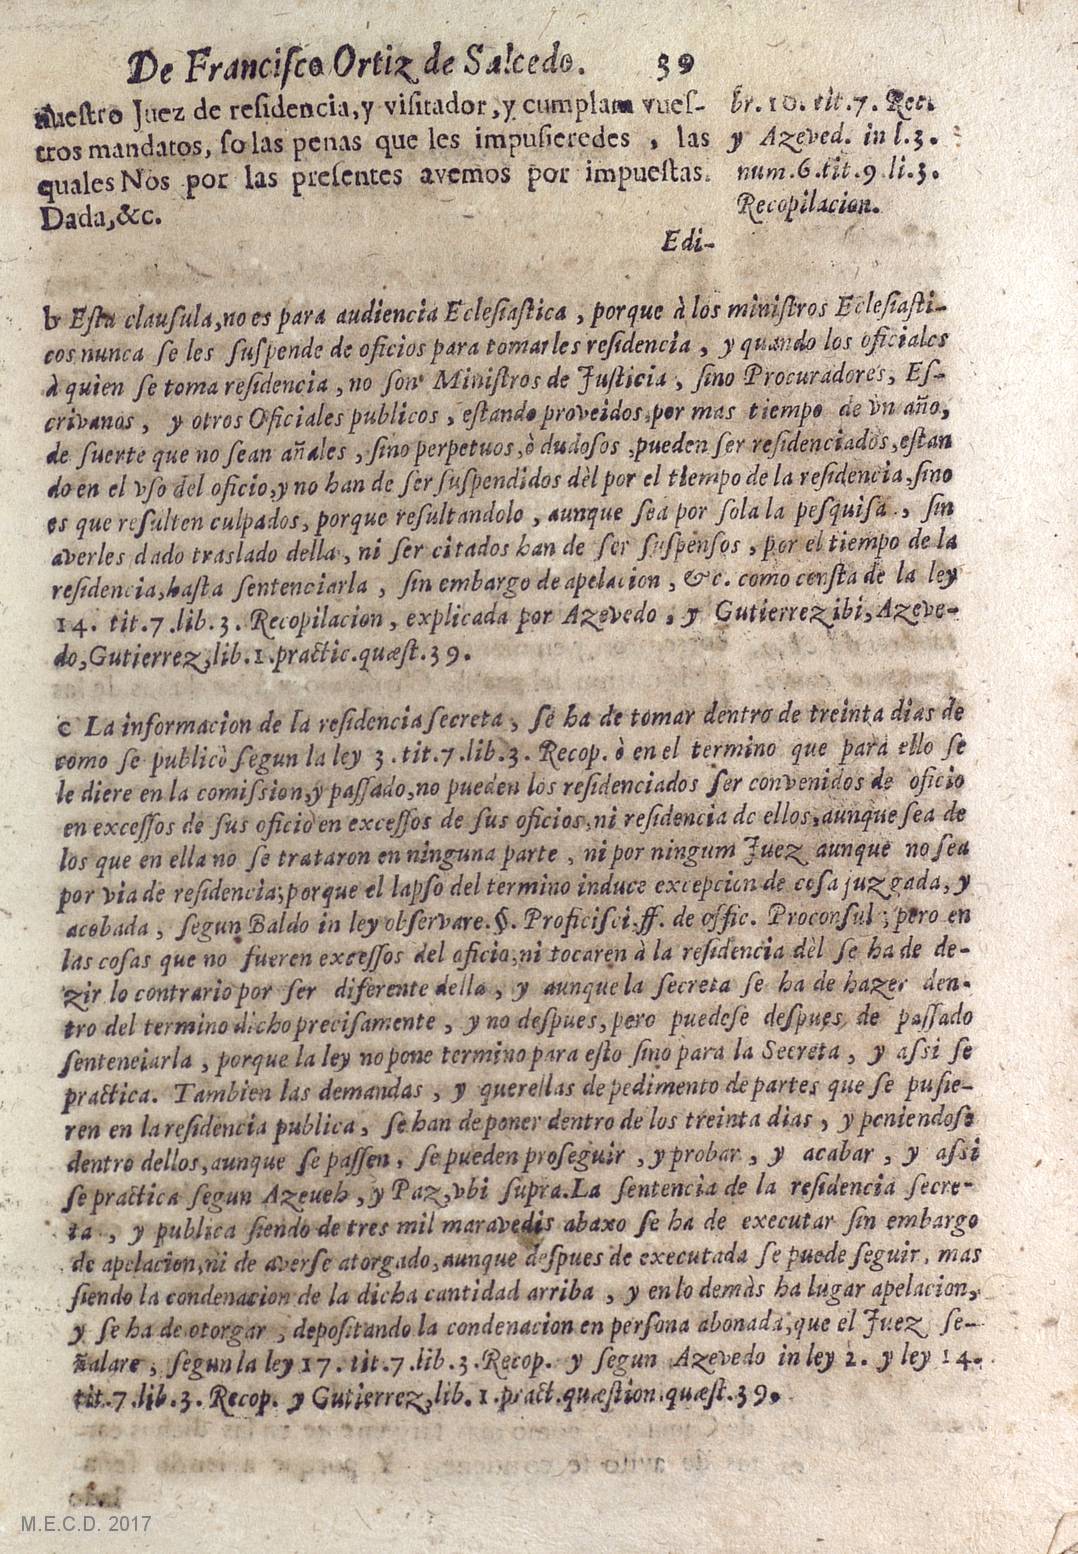 De Franciſco Ortiz de Salcedo. 39
nueſtro Juez de reſidencia, y viſitador, y cumplan vueſ-
tros mandatos, ſo las penas que les impuſieredes , las
quales Nos por las preſentes avemos por impueſtas.
Dada, &c.
br. 10. tit. 7. Rec.
y Azeved. in l. 3.
num. 6. tit. 9. li. 3.
Recopilacion.
Edi-
b Eſta clauſula, no es para audiencia Ecleſiaſtica , porque à los miniſtros Ecleſiaſti-
cos nunca ſe les ſuſpende de oficios para tomarles reſidencia , y quando los oficiales
à quien ſe toma reſidencia , no ſon Miniſtros de Juſticia , ſino Procuradores, Eſ-
crivanos , y otros Oficiales publicos , eſtando proveidos por mas tiempo de vn año,
de ſuerte que no ſean añales , ſino perpetuos, ò dudoſos , pueden ſer reſidenciados, eſtan
do en el vſo del oficio, y no han de ſer ſuſpendidos dèl por el tiempo de la reſidencia, ſino
es que reſulten culpados, porque reſultandolo , aunque ſea por ſola la peſquiſa , ſin
averles dado traslado della , ni ſer citados han de ſer ſuſpenſos , por el tiempo de la
reſidencia, haſta ſentenciarla , ſin embargo de apelacion , &c. como conſta de la ley
14. tit. 7. lib. 3. Recopilacion, explicada por Azevedo , y Gutierrez ibi, Azeve-
do, Gutierrez, lib. 1. practic. quæſt. 39.
c La informacion de la reſidencia ſecreta , ſe ha de tomar dentro de treinta dias de
como ſe publicò ſegun la ley 3. tit. 7. lib. 3. Recop. ò en el termino que para ello ſe
le diere en la comiſsion, y paſſado, no pueden los reſidenciados ſer convenidos de oficio
en exceſſos de ſus oficio en exceſſos de ſus oficios, ni reſidencia de ellos, aunque ſea de
los que en ella no ſe trataron en ninguna parte , ni por ningum Juez aunque no ſea
por via de reſidencia; porque el lapſo del termino induce excepcion de coſa juzgada, y
acobada , ſegun Baldo in ley obſervare. §. Proficiſci, ff. de offic. Proconſul ; pero en
las coſas que no fueren exceſſos del oficio, ni tocaren à la reſidencia dèl ſe ha de de-
zir lo contrario por ſer diferente della , y aunque la ſecreta ſe ha de hazer den-
tro del termino dicho preciſamente , y no deſpues, pero puedeſe deſpues de paſſado
ſenteneiarla , porque la ley no pone termino para eſto ſino para la Secreta , y aſsi ſe
practica. Tambien las demandas , y querellas de pedimento de partes que ſe puſie-
ren en la reſidencia publica , ſe han de poner dentro de los treinta dias , y poniendoſe
dentro dellos, aunque ſe paſſen , ſe pueden proſeguir , y probar , y acabar , y aſsi
ſe practica ſegun Azeueh , y Paz, vbi ſupra. La ſentencia de la reſidencia ſecre-
ta , y publica ſiendo de tres mil maravedis abaxo ſe ha de executar ſin embargo
de apelacion, ni de averſe atorgado, aunque deſpues de executada ſe puede ſeguir, mas
ſiendo la condenacion de la dicha cantidad arriba , y en lo demàs ha lugar apelacion,
y ſe ha de otorgar , depoſitando la condenacion en perſona abonada, que el Juez ſe-
ñalare , ſegun la ley 17. tit. 7. lib. 3. Recop. y ſegun Azevedo in ley 2. y ley 14.
tit. 7. lib. 3. Recop. y Gutierrez, lib. 1. pract. quæſtion. quæſt. 39.
M.E.C.D. 2017